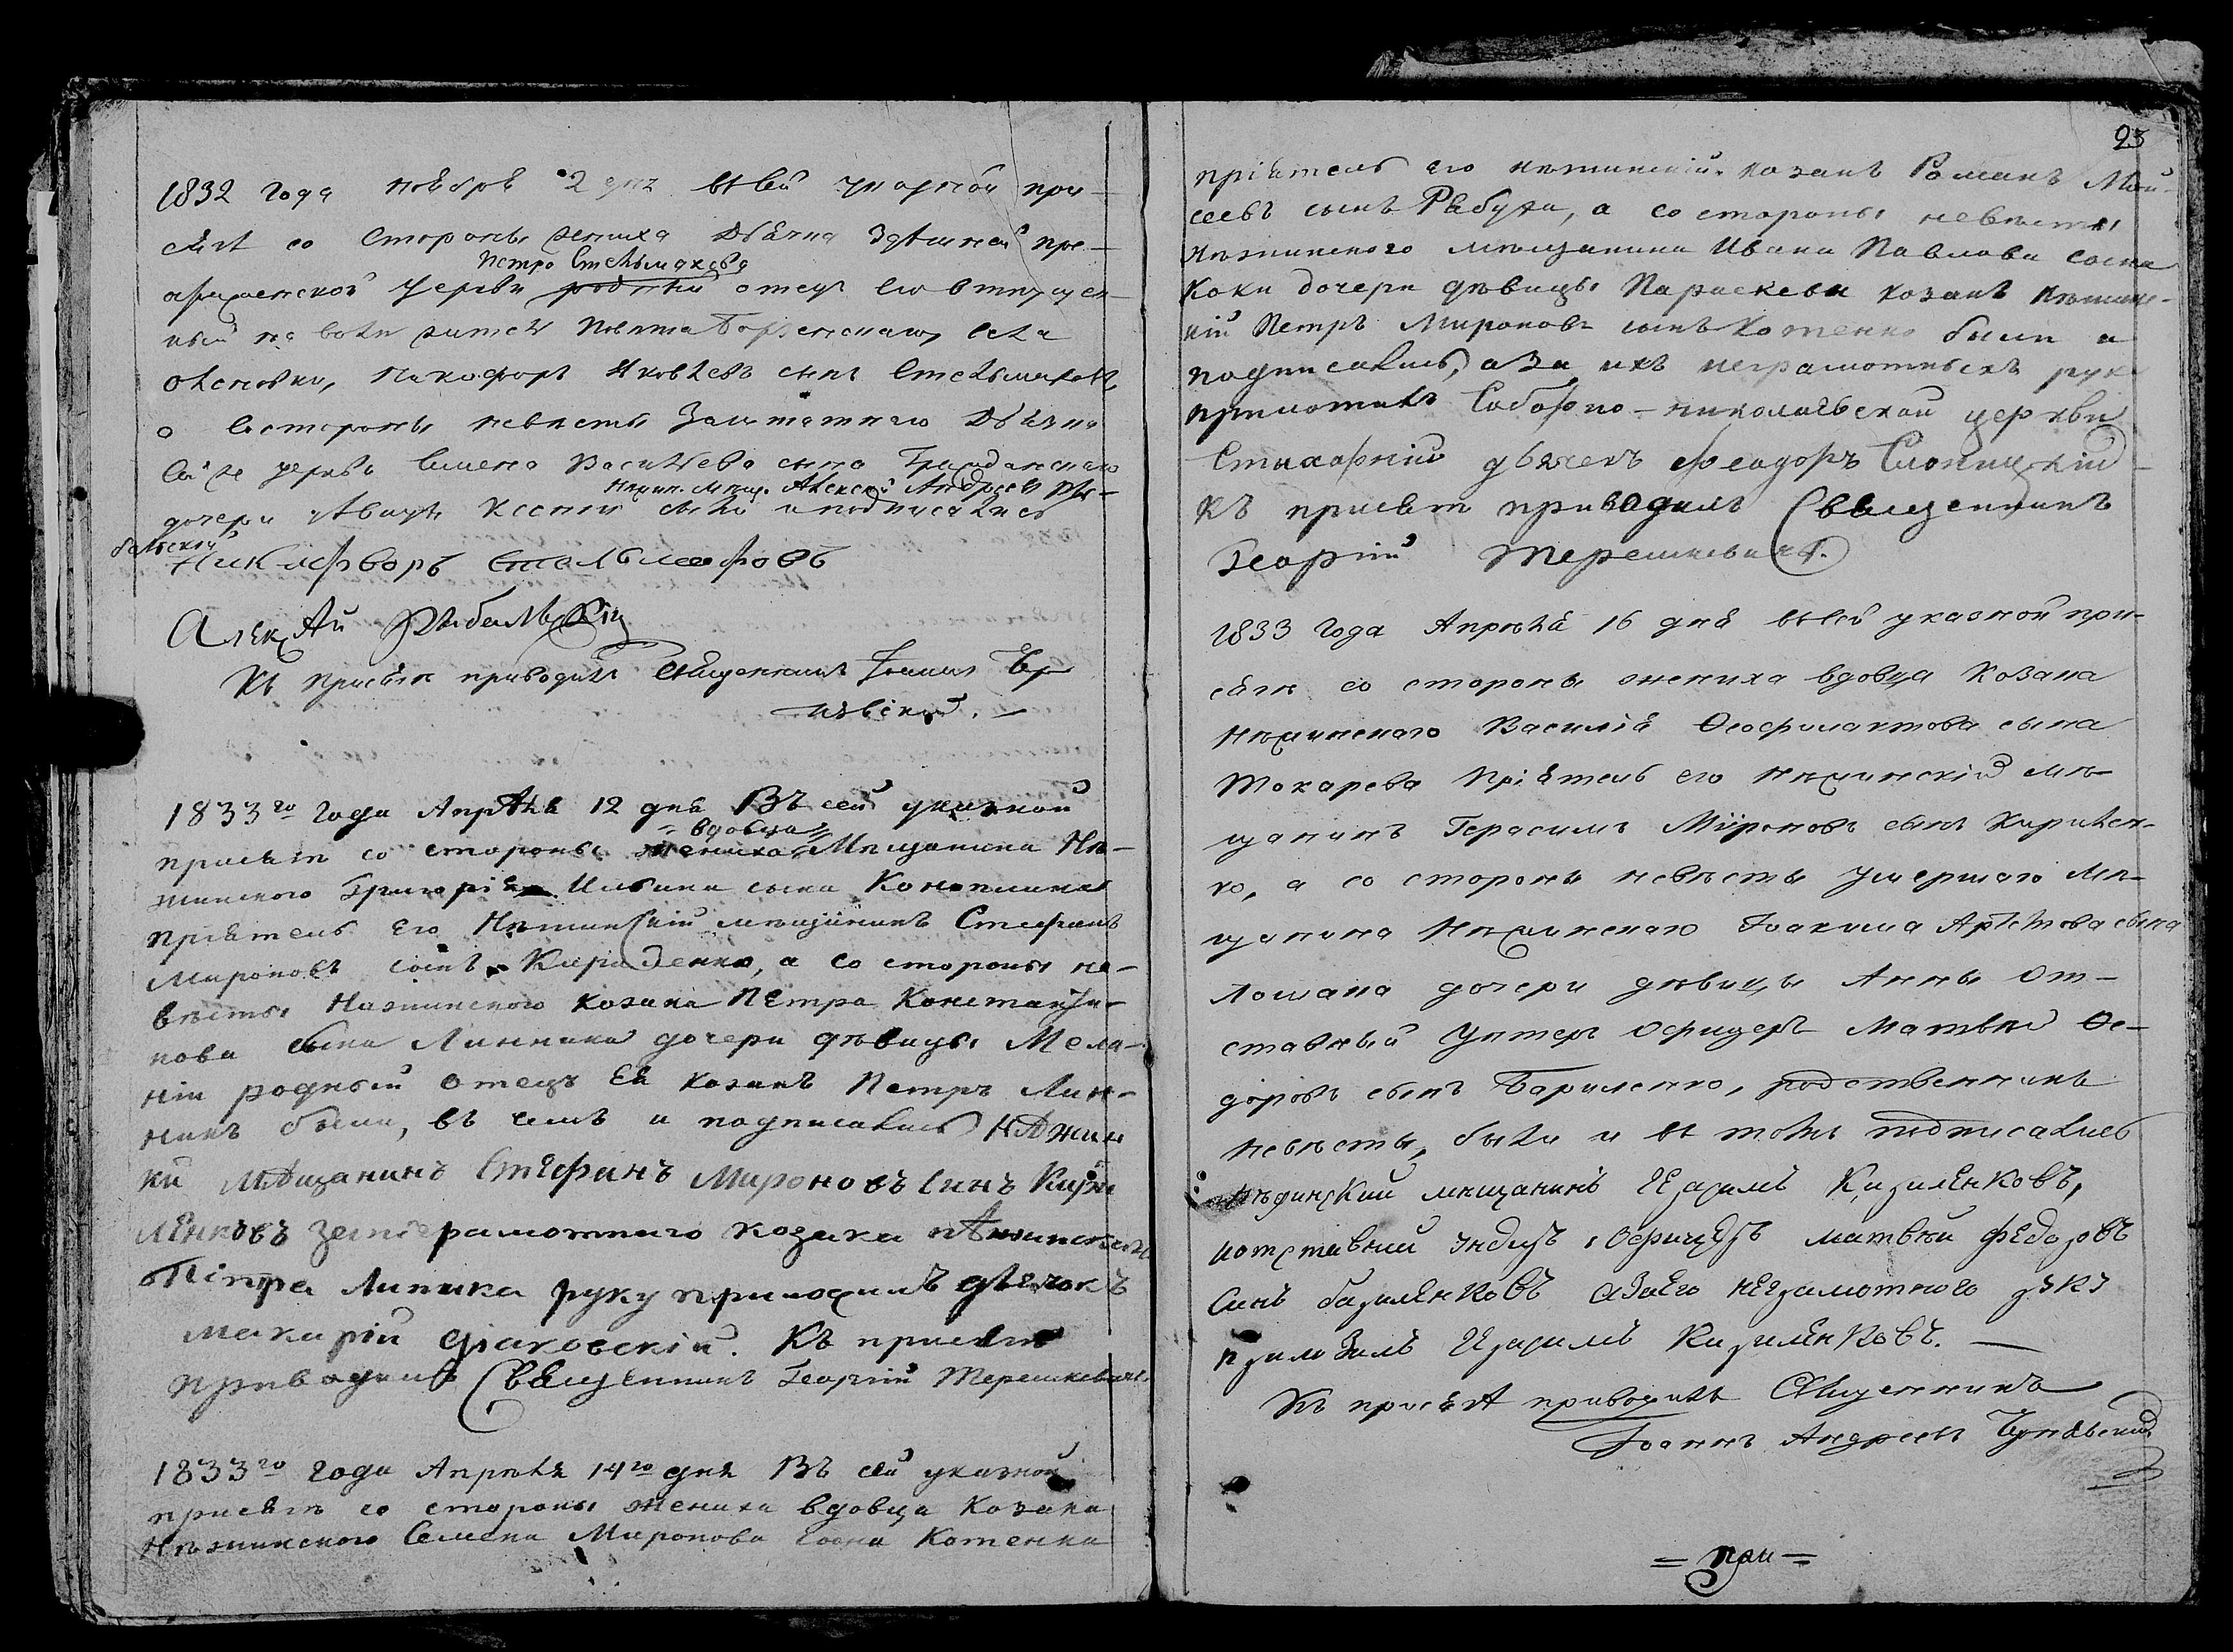 1832 года ноября 2 дня въ сей указной при-
сягѣ со стороны жениха дьячка здѣшней пре-
Петра Стельмахова
ображенской церкви родной отецъ его отпущен-
ный на волю житель повѣта Борзенскаго села
Оленовки, Никифоръ Яковлевъ сынъ Стельмаховъ,
а со стороны невѣсты Заштатнаго дьячка
сей же церкви Симеона Васильева сына Гражданскаго
Нѣжин. мѣщ. Алексей Андреевъ Ры-
дочери дѣвицы Ксении были и подписались
бальский
Никифворъ Стельмаховъ
Алексѣй Рыбальскій
Къ присягѣ приводилъ Священникъ Іоаннъ Чер
нѣвский. —
1833го года Апрѣля 12 дня Въ сей указной
вдовца
присягѣ со стороны жениха Мѣщанина Нѣ-
жинского Григорія Ильина сына Конопlianка
пріятель его Нѣжинскій мѣщанинъ Стефанъ
Мироновъ сынъ Кириленко, а со стороны не-
вѣсты Нѣжинского козака Петра Константи-
нова сына Линника дочери дѣвицы Мела-
ніи родный отецъ Ея козакъ Петръ Лин-
никъ были, въ чемъ и подписались Нѣжин
кій мѣщанинъ Стефанъ Мироновъ синъ Кири
ленковъ занеграмотнаго козака нѣжинскаго
Петра Линика руку приложилъ дьячокъ
Макарій Діаковскій. Къ присягѣ
приводилъ Священникъ Георгій Терешкевичъ
1833го года Апрѣля 14го дня Въ сей указной
присягѣ со стороны жениха вдовца Козака
Нѣжинского Семена Миронова сына Котенка
23
пріятель его нѣжинскій козакъ Романъ Мой-
сеевъ сынъ Рабуха, а со стороны невѣсты
Нѣжинского мѣщанина Ивана Павлова сына
Коки дочери дѣвицы Параскевы козакъ нѣжинс-
кій Петръ Мироновъ сынъ Котенко были и
подписались, а за ихъ неграмотныхъ руку
приложилъ Соборно-николаевской церкви
Стихарній дьячекъ Феодоръ Слоницкій
къ присягѣ приводилъ Священникъ
Георгій Терешкевичъ.
1833 года Апрѣля 16 дня въ сей указной при-
сягѣ со стороны жениха вдовца Козака
Нѣжинского Василія Ѳеофилактова сына
Токарева пріятель его Нѣжинскій мѣ-
щанинъ Герасимъ Міроновъ сынъ Кирилен-
ко, а со стороны невѣсты умершаго мѣ-
щанина Нѣжинского Іоакима Артемова сына
Лошака дочери дѣвицы Анны от-
ставный Унтеръ Офицеръ Матвѣй Ѳе-
доровъ сынъ Бариленко, родственникъ
невѣсты, были и въ томъ подписались
нѣжинский мещанинъ Герасимъ Кириленковъ,
иотставний ундиръ офицеръ матвѣй федоровъ
Синъ бариленковъ азаего неграмотного руку
приложилъ Герасимъ Кириленковъ. —
Къ присягѣ приводилъ Священникъ
Іоаннъ Андреевъ Чернѣвский
= при =